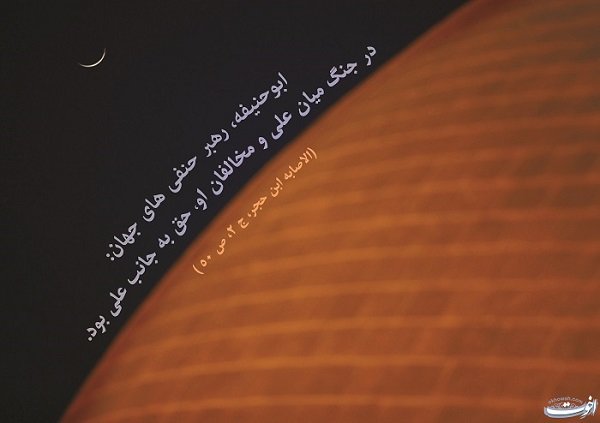 ابوحنیفه، رهبر حنفی های جهان:
در جنگ میان علی و مخالفان او، حق به جانب علی بود.
(الاصابه ابن حجر، ج ۲، ص ۵۰)
اخوت